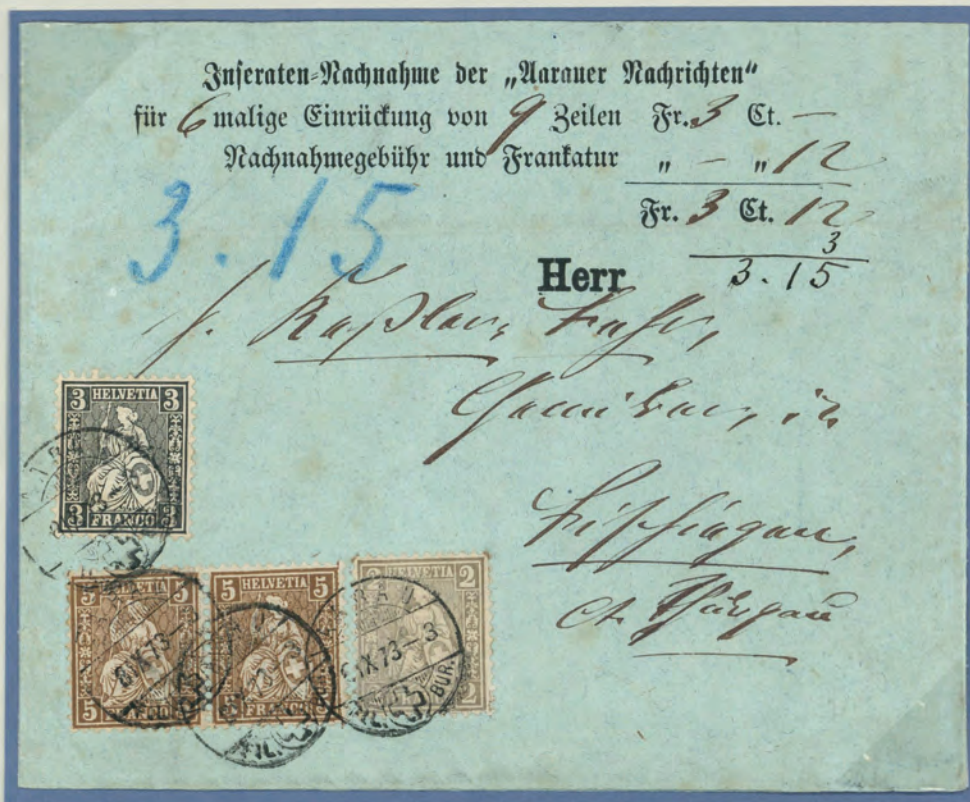 Inseraten-Nachnahme der „Aarauer Nachrichten“
für 6 malige Einrückung von 9 Zeilen Fr. 3 Ct. –
Nachnahmegebühr und Frankatur „ – „ 12
Fr. 3 Ct. 12
3
3.15
3.15
Herr
Fischingen,
Ct. Thurgau
3 HELVETIA 3
3 FRANCO 3
5 HELVETIA 5
5 FRANCO 5
5 HELVETIA 5
5 FRANCO 5
2 HELVETIA 2
AARAU
IX.73–3
FIL. BUR.